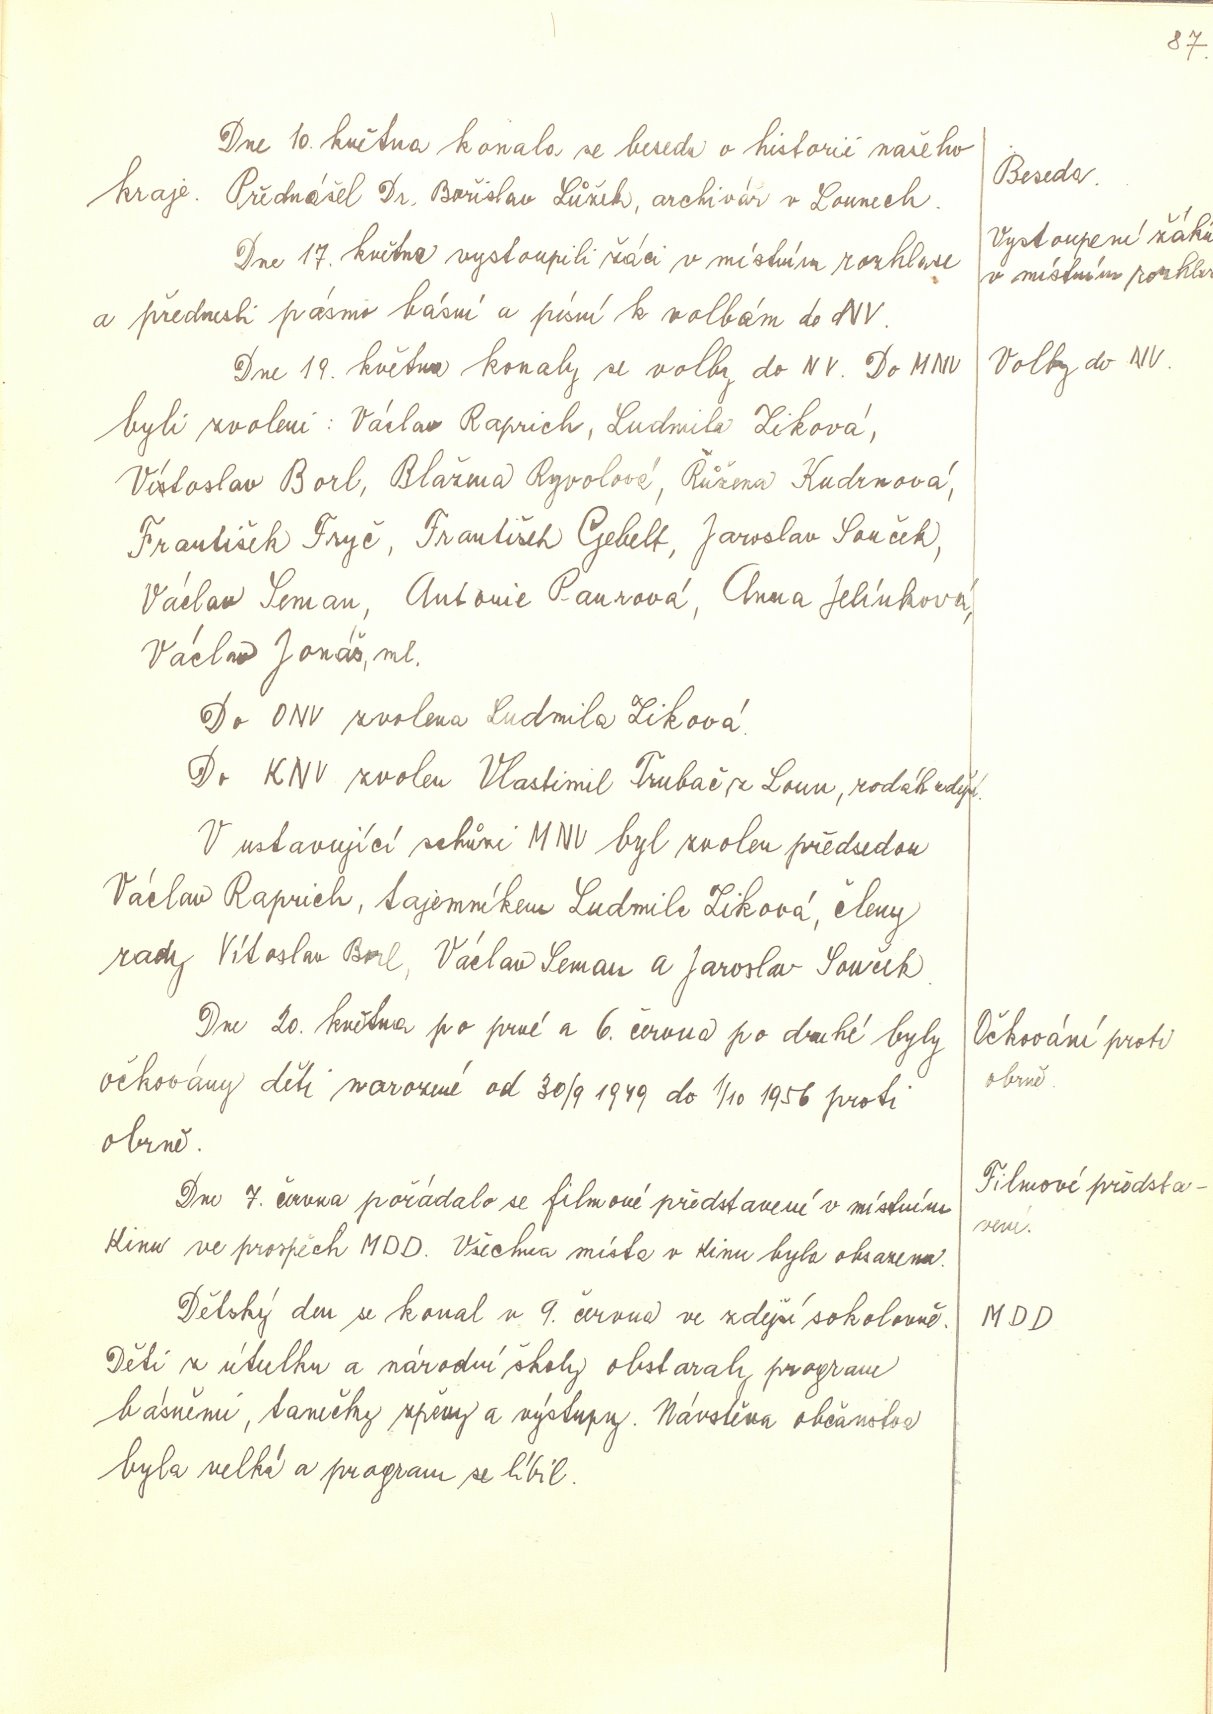 87.
Dne 10. května konala se beseda o historii našeho
kraje. Přednášel Dr. Bořislav Lůžek, archivář v Lounech.
Beseda.
Dne 17. května vystoupili žáci v místním rozhlase
a přednesli pásmo básní a písní k volbám do NV.
Vystoupení žáků
v místním rozhlas
Dne 19. května konaly se volby do NV. Do MNV
Volby do NV.
byli zvoleni: Václav Raprich, Ludmila Ziková,
Vítoslav Borl, Blažena Ryvolová, Růžena Kudrnová,
František Fryč, František Gebelt, Jaroslav Souček,
Václav Seman, Antonie Paurová, Anna Jelínková,
Václav Jonáš, ml.
Do ONV zvolena Ludmila Ziková.
Do KNV zvolen Vlastimil Trubač, z Loun, rodák zdejší.
V ustavující schůzi MNV byl zvolen předsedou
Václav Raprich, tajemníkem Ludmila Ziková, členy
rady Vítoslav Borl, Václav Seman a Jaroslav Souček.
Dne 20. května po prvé a 6. června po druhé byly
očkovány děti narozené od 30/9 1949 do 1/10 1956 proti
obrně.
Očkování proti
obrně.
Dne 7. června pořádalo se filmové představení v místním
kinu ve prospěch MDD. Všechna místa v kinu byla obsazena.
Filmové předsta-
vení.
Dětský den se konal v 9. června ve zdejší sokolovně.
MDD
Děti z útulku a národní školy obstaraly program
básněmi, tanečky zpěvy a výstupy. Návštěva občanstva
byla velká a program se líbil.